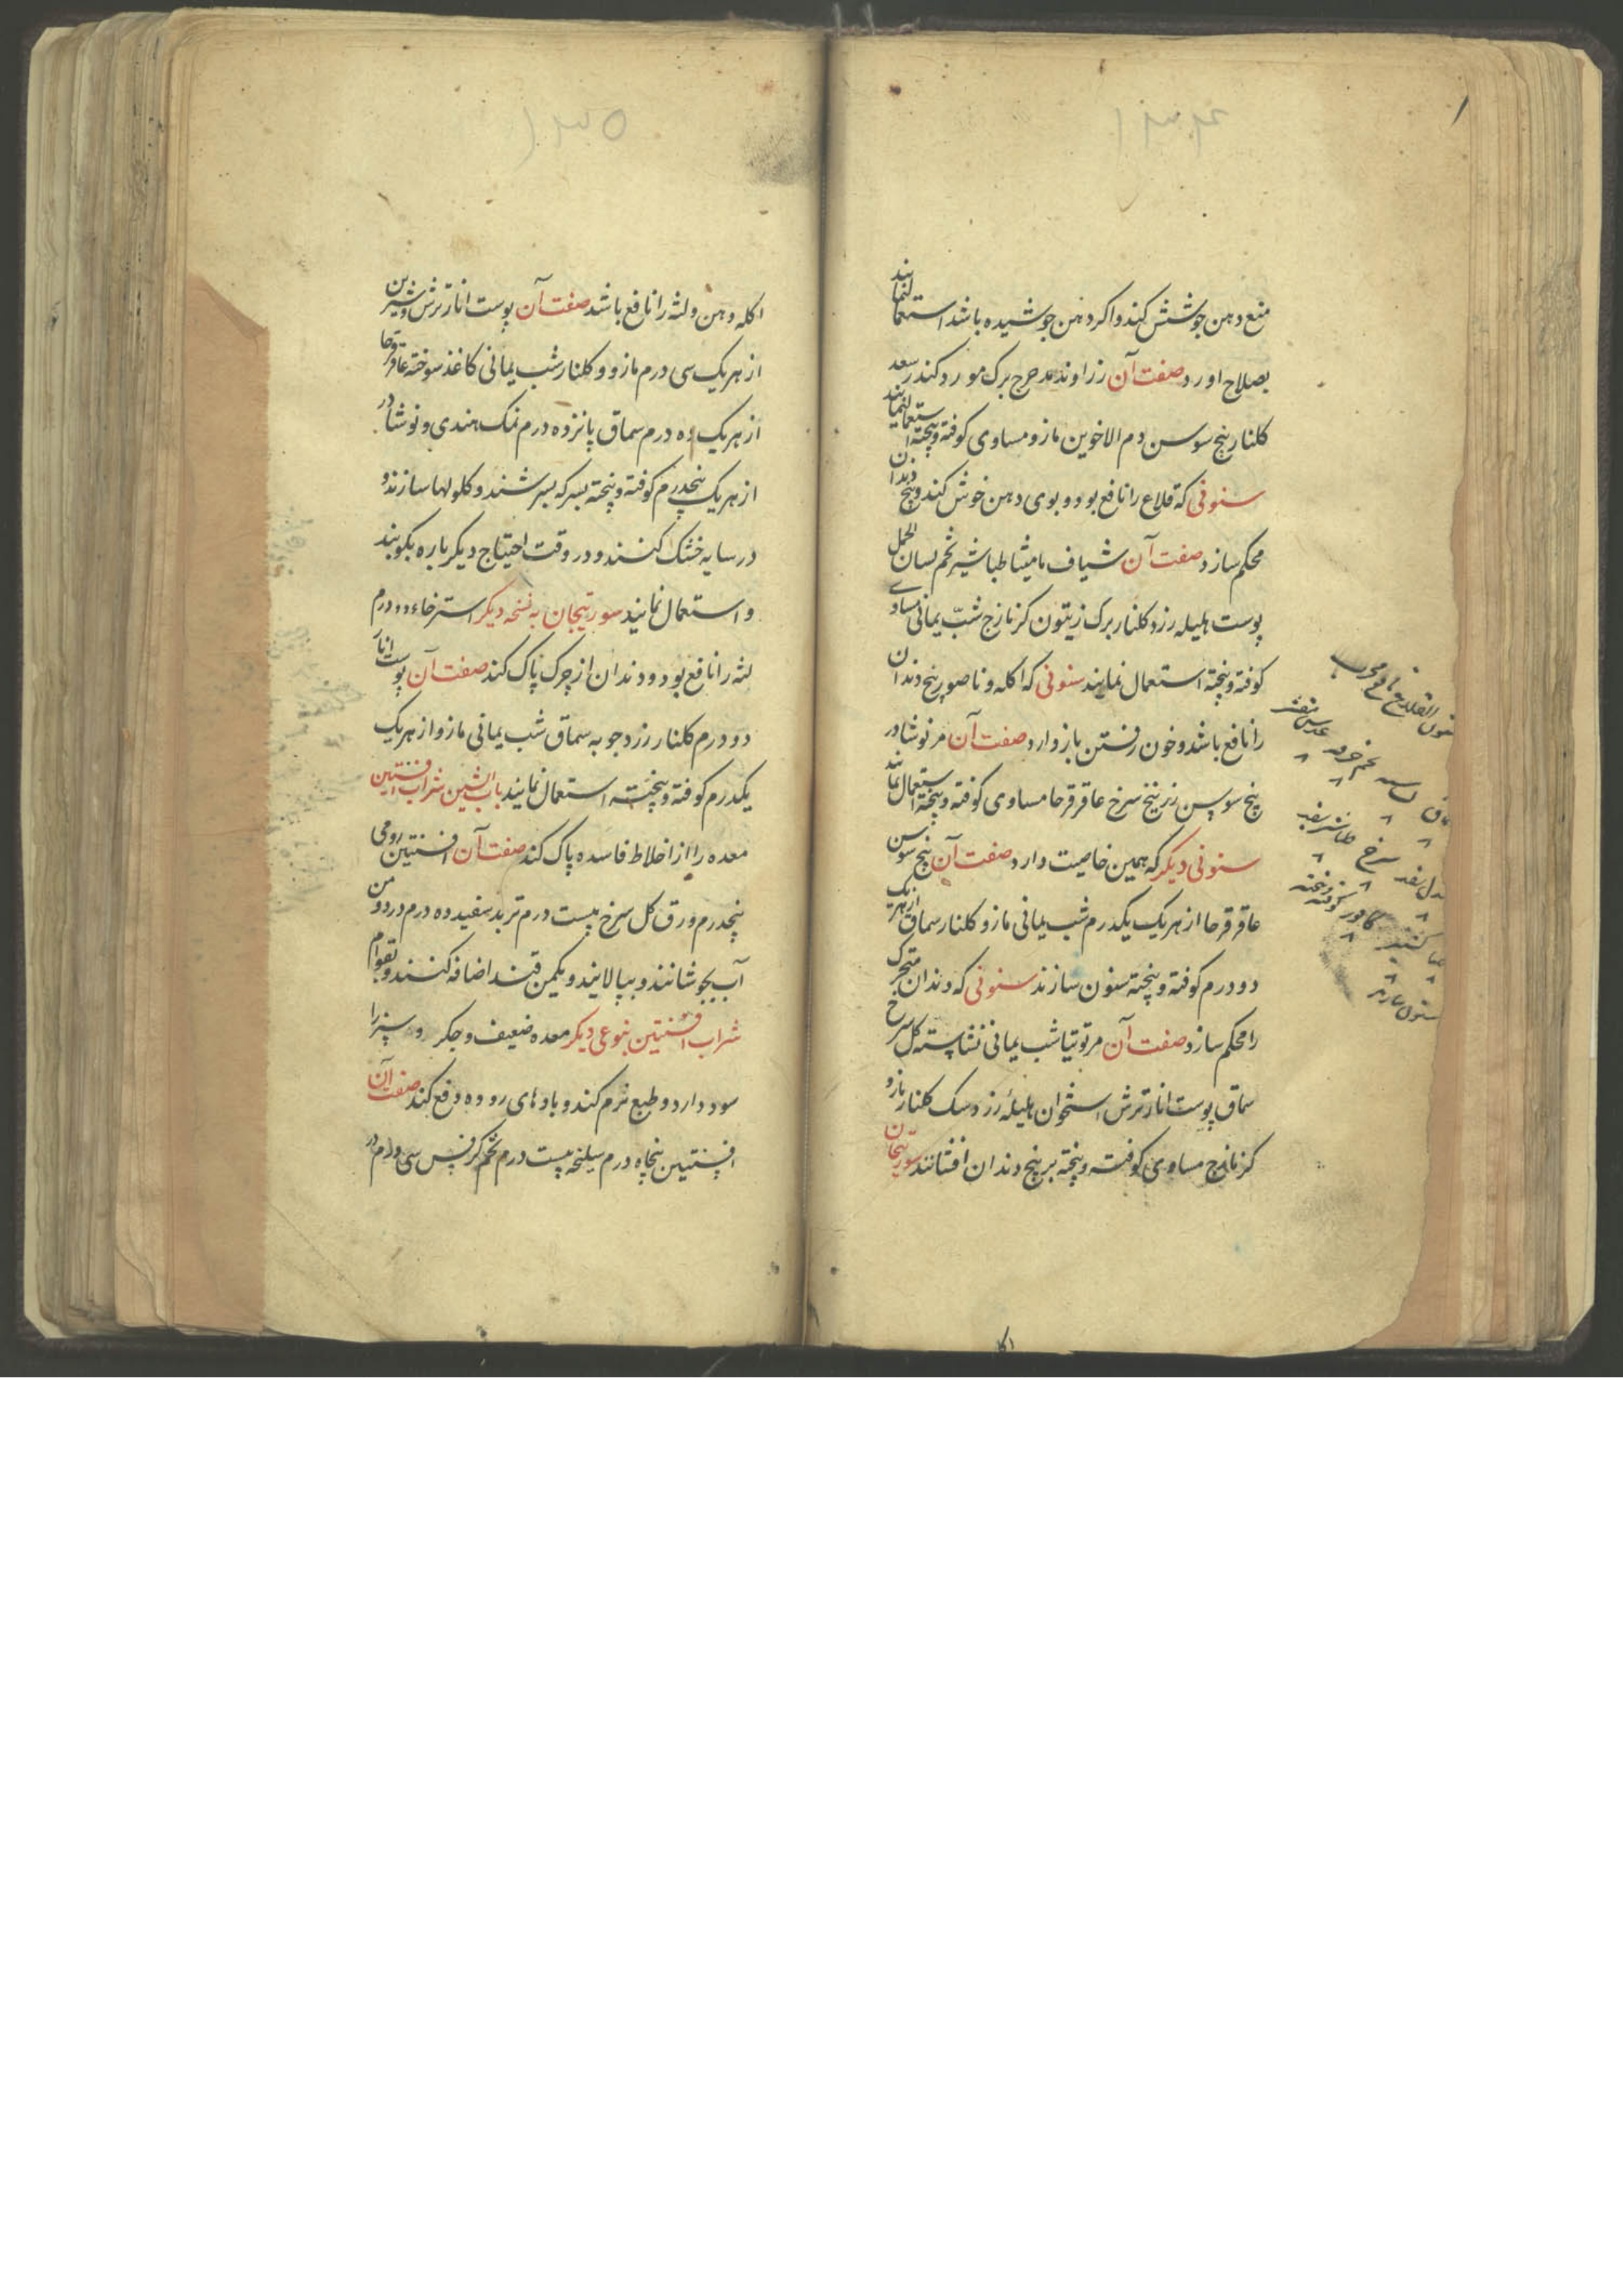 ۱۳۴
منع دهن جوشش کند و اکر دهن جوشیده باشد استعمالنمایند
بصلاح اورد صفت آن زراوند مدحرج برک مورد کندر سعد
کلنار بیخ سوسن دم الاخوین مازو مساوی کوفته و پیخته استعمالنمایند
سنونی که قلاع را نافع بود و بوی دهن خوش کند و بیخ دندان
محکم سازد صفت آن شیاف مامیثا طباشیر تخم لسان الحمل
پوست هلیله زرد کلنار برک زیتون کزمازج شبّ یمانی مساوی
کوفته و پیخته استعمال نمایند سنونی که اکله و ناصور بیخ دندان
را نافع باشد و خون رفتن بازدارد صفت آن مر نوشادر
بیخ سوسن زرنیخ سرخ عاقرقرحا مساوی کوفته و پیخته استعمال نمایند
سنونی دیکر که همین خاصیت دارد صفت آن بیخ سوسن
عاقرقرحا از هریک یکدرم شب یمانی مازو کلنار سماق ازهریک
دو درم کوفته و پیخته سنون سازند سنونی که دندان متحرک
را محکم سازد صفت آن مر توتیا شب یمانی نشاسته کل سرخ
سماق پوست انار ترش استخوان هلیلهٔ زرد سک کلنار مازو
کزمازج مساوی کوفته و پیخته بر بیخ دندان افشانند سورتیجان
۱۳۵
اکله دهن و لثه را نافع باشد صفت آن پوست انار ترش و شیرین
از هریک سی درم مازو و کلنار شب یمانی کاغذ سوخته عاقرقرحا
از هریک ده درم سماق پانزده درم نمک هندی و نوشادر
از هریک پنجدرم کوفته و پیخته بسرکه بسرشند و کلولها سازند و
در سایه خشک کنند و در وقت احتیاج دیکر باره بکوبند
و استعمال نمایند سورتیجان به نسخه دیکر استرخاء و ورم
لثه را نافع بود و دندان از چرک پاک کند صفت آن پوست انار
دو درم کلنار زرد جوبه سماق شب یمانی مازو از هریک
یکدرم کوفته و پیخته استعمال نمایند باب الشین شراب افسنتین
معده را از اخلاط فاسده پاک کند صفت آن افسنتین رومی
پنجدرم ورق کل سرخ بیست درم تربد سفید ده درم در دو من
آب بجوشانند و بپالایند و یکمن قند اضافه کنند و بقوام
شراب افسنتین بنوعی دیکر معده ضعیف و جکر و سپرز را
سود دارد و طبع نرم کند و بادهای روده دفع کند صفت آن
افسنتین پنجاه درم سلیخه بیست درم تخم کرفس سی درم در